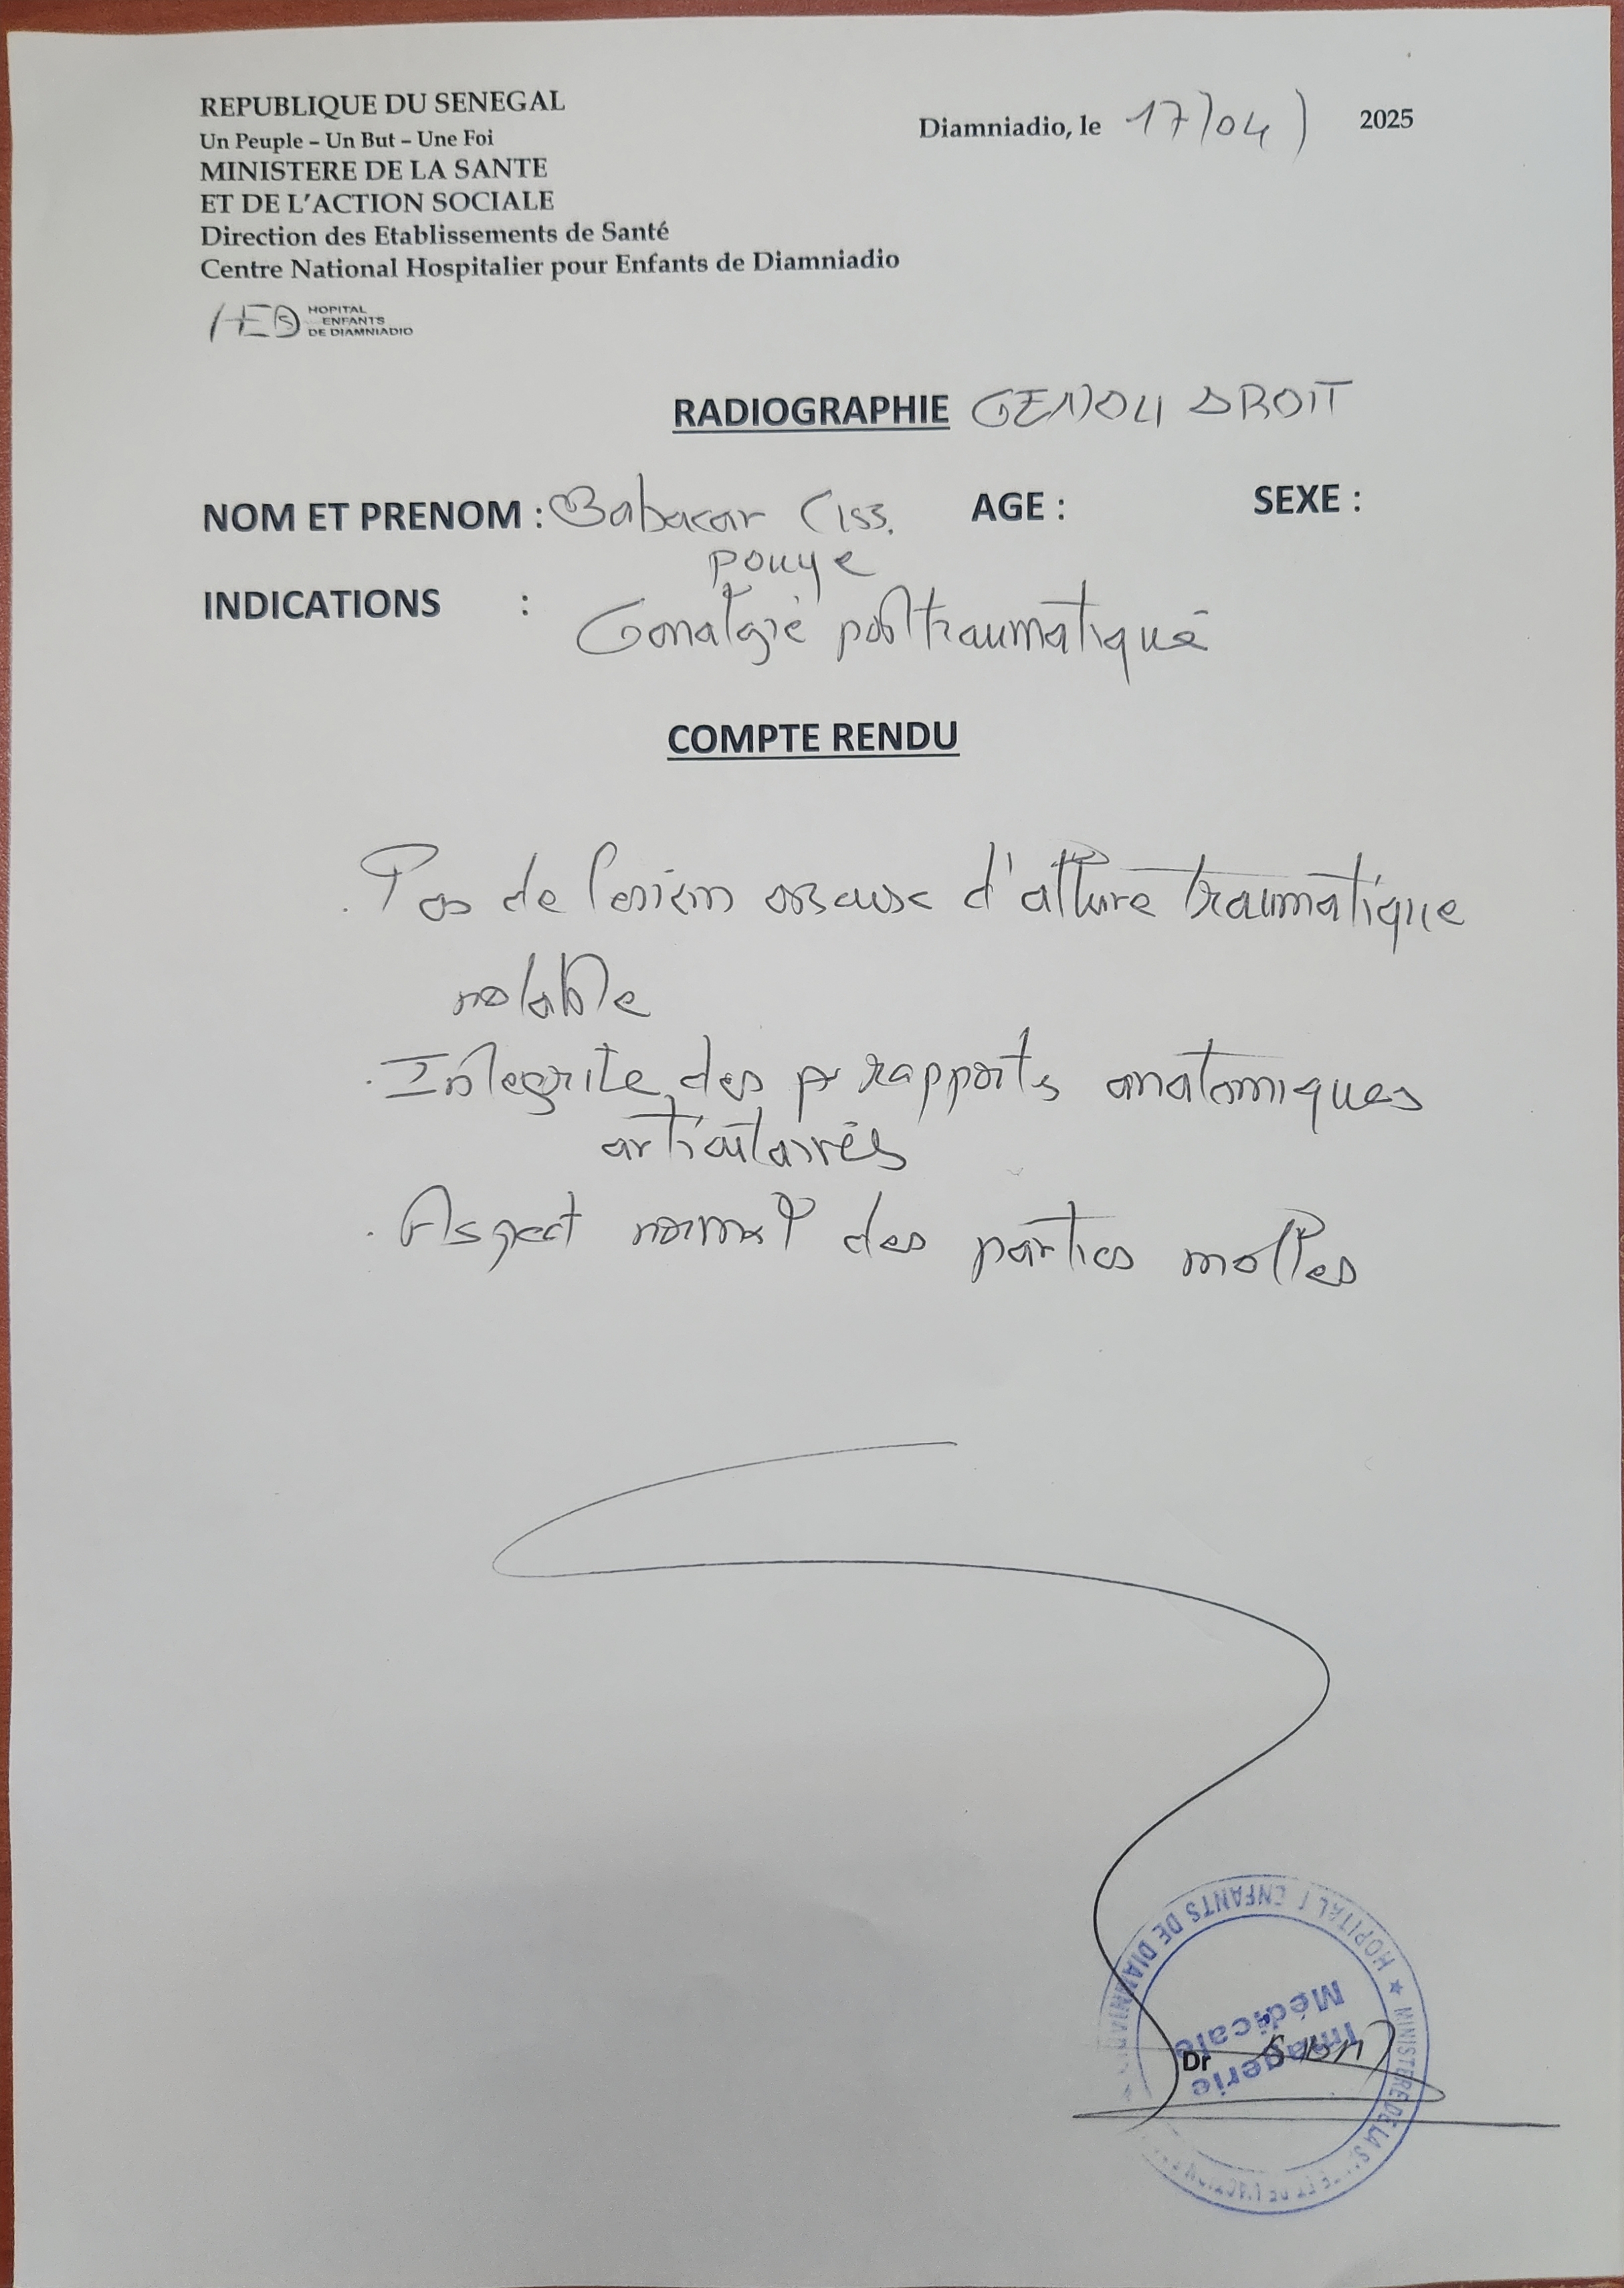 REPUBLIQUE DU SENEGAL
Un Peuple – Un But – Une Foi
MINISTERE DE LA SANTE
ET DE L'ACTION SOCIALE
Direction des Etablissements de Santé
Centre National Hospitalier pour Enfants de Diamniadio
Diamniadio, le 17/04/ 2025
HED HOPITAL
ENFANTS
DE DIAMNIADIO
RADIOGRAPHIE GENOU DROIT
NOM ET PRENOM : Babacar Ciss. AGE : SEXE :
pouye
INDICATIONS :
Gonalgie postraumatique
COMPTE RENDU
. Pas de lesion osseuse d'allure traumatique
notable
. Intégrite des rapports anatomiques
articulaires
. Aspect normal des parties molles
HOPITAL ENFANTS DE
MINISTERE DE LA
Imagerie
Médicale
Dr